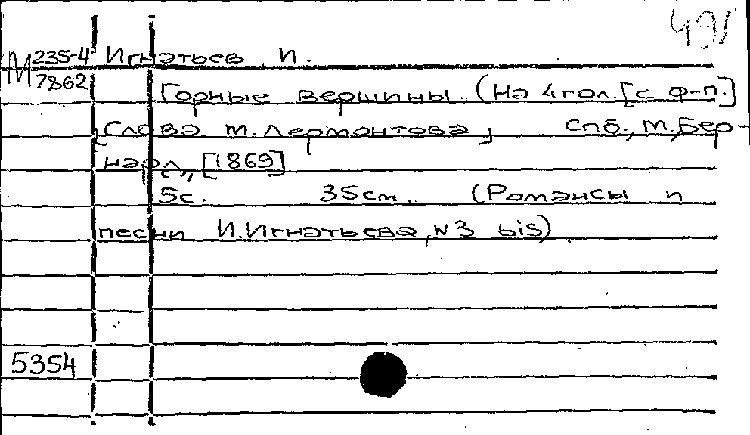 491
М 235-4 Игнатьев, И.
7862
Горные вершины. (На 4 гол. [с ф-п.]
Слова М. Лермонтова, Спб., М, Бер-
нард, [1869]
5с. 35см. (Романсы и
песни И. Игнатьева, №3 bis)
5354